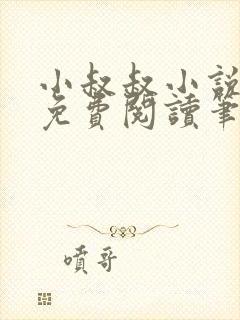 小叔叔小說
免費閱讀筆
噴哥